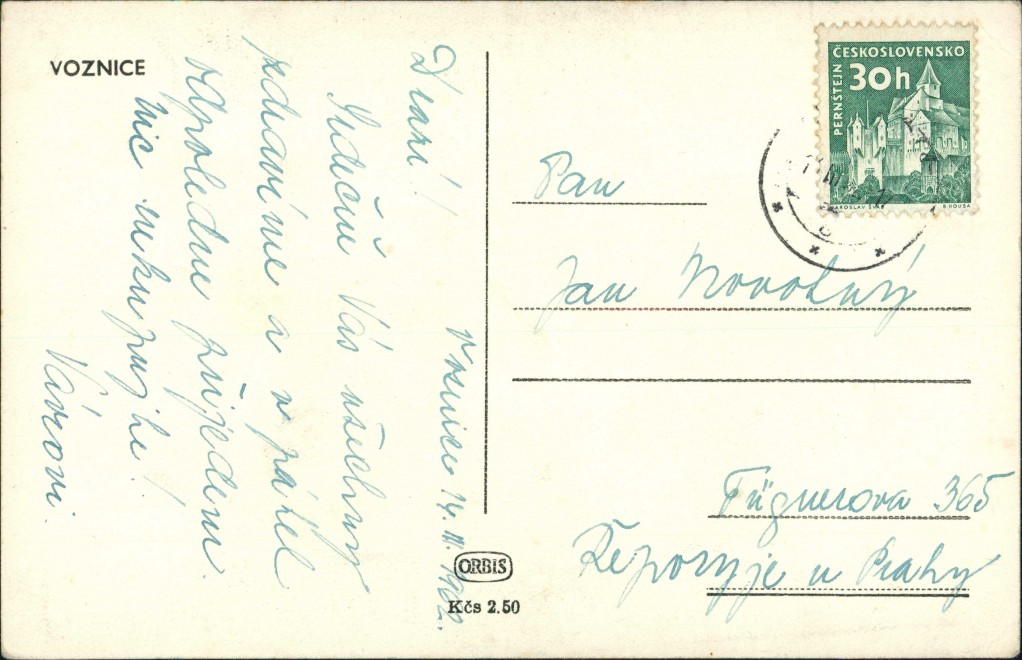 VOZNICE
Voznice 14.III.1962.
Drazí!
Srdečně Vás všechny
zdravíme a v pátek
odpoledne přijedem
nic nekupujte!
Vávrovi
ORBIS
Kčs 2.50
ČESKOSLOVENSKO
30h
PERNŠTEJN
JAROSLAV
B. HOUSA
Pan
Jan Novotný
Fügnerova 365
Řeporyje u Prahy